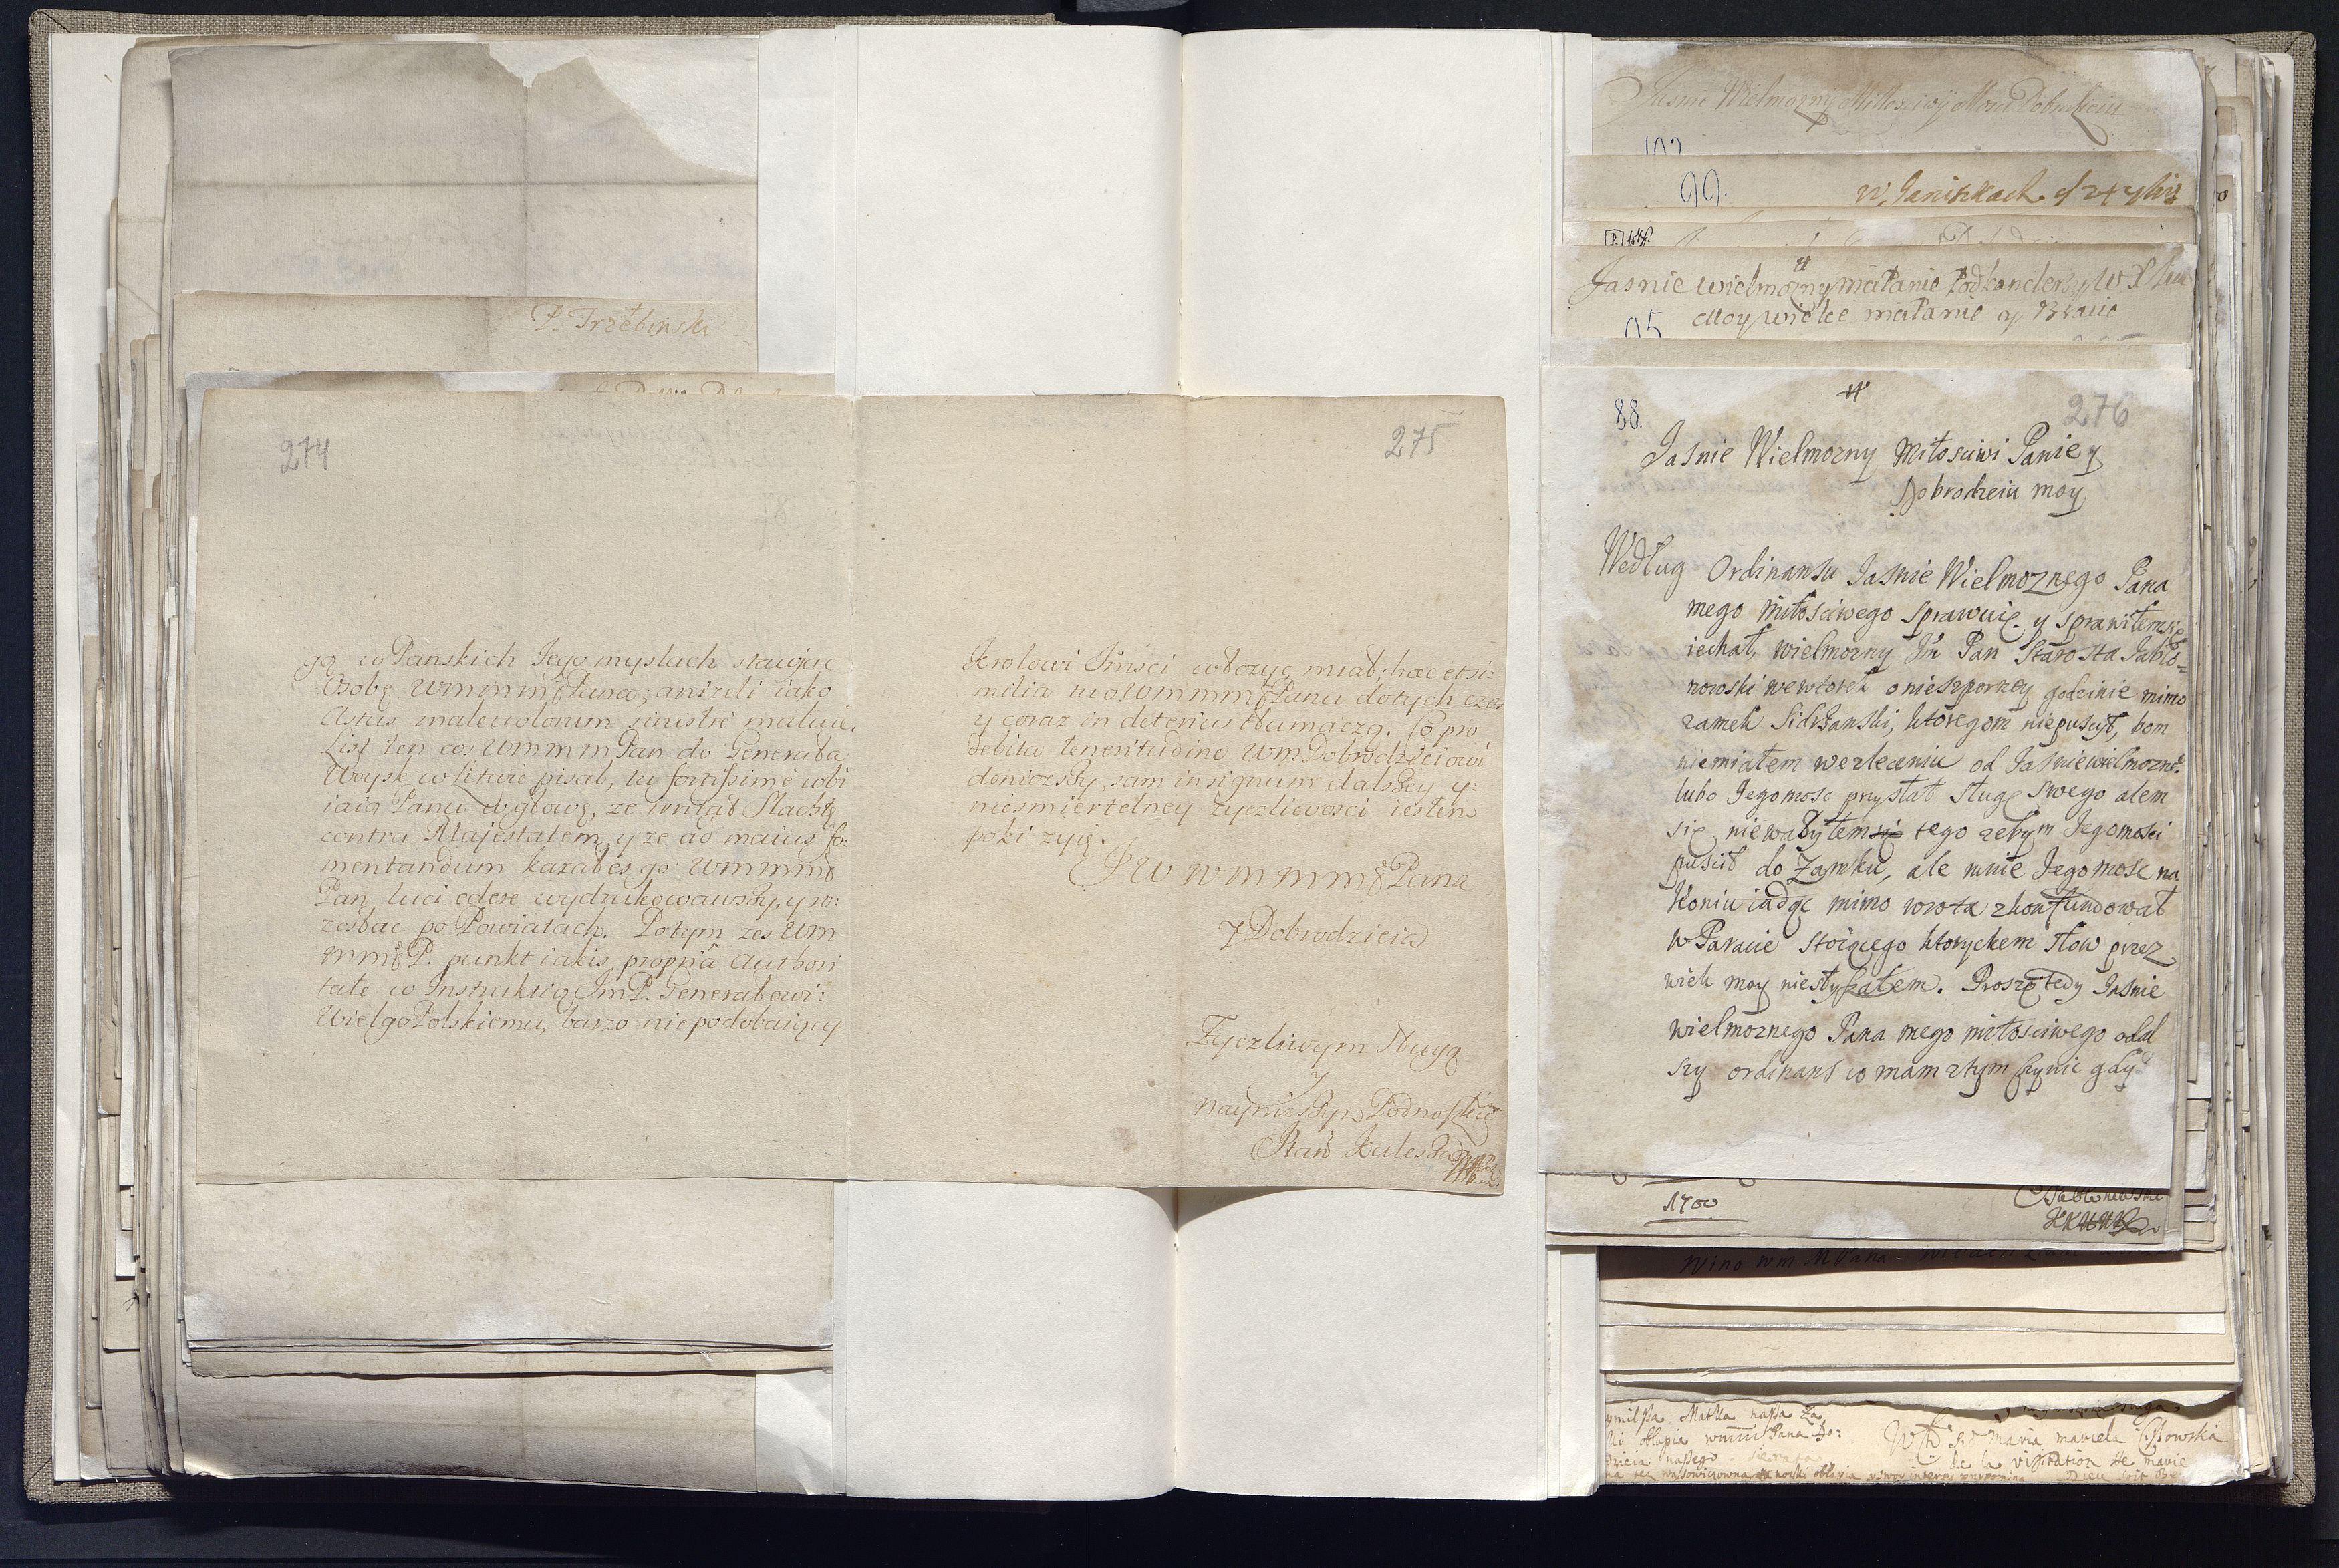 P. Trzebinski
274
gą w Panskich Jego myslach stawiac
Osobę Wmmmº Pana; anizeli iako
Astus malevolorum sinistre maluie.
List ten cos Wmmm Pan do Generała
w Litwie pisał, tu fortissime wbi
iaią Panu w głowę, ze irritat Slachtę
contra Majestatem, y ze ad maius fo:
mentandum kazałes go Wmmmº
Pan luci edere wydrukowawszy, y ro:
zesłac po Powiatach. Potym zes Wm
mmº P. punkt iakis propria authori
tate w Instruktią JmP. Generałowi:
WielgoPolskiemu, barzo niepodobaiący
275
Krolowi Jmsci włozyc miał; haec et si:
milia tu o Wmmmº Panu dotych czas
y coraz in deterius tłumaczą. Co pro
debita teneritudine Wm Dobrodzieiowi
doniozszy, sam in signum dalszey y:
niesmiertelney zyczliwosci iestem
poki zyię.
JW Wmmmº Pana
y Dobrodzieia
Zyczliwym sługą
y
nayniszszym Podnoszkiem
Jasnie Wielmozny Miłosciwy Mosci Dobrodzieiu
102
99.
w Janiszkach d 24
Jasnie wielmozny mci Panie Podkanclerzy W X Litt
Moy wielce mci Panie y Bracie
95
88.
276
Jasnie Wielmozny Miłosciwi Panie y
Dobrodzieiu moy
Według Ordinansu Jasnie Wielmoznego Pana
mego miłosciwego sprawuię y sprawiłem się
iechał, wielmozny Jm Pan Starosta Jabło=
nowski wewtorek onieszporney godzinie mimo
zamek Sidrzanski, ktoregom niepuscył, bom
niemiałem wezleceniu od Jasnie wielmozne.
lubo Jegomosc przysłał sługę swego alem
się niewazyłem się tego zebym Jegomosci
puscił do Zamku, ale mnie Jegomosc na
Koniu iadąc mimo wrota zkonfundował
w Paracie stoiącego ktorychem słow przez
wiek moy niesłyszałem. Proszę tedy Jasnie
wielmoznego Pana mego miłosciwego odal
szy ordinans co mam ztym czynic gdyz
1700
Jabłonowski
HKWK
Wino wm M Pana
Matka nasza Za
obłapia wmm Pana Do:
dzieia naszego
Maria
de la visitation Ste marie